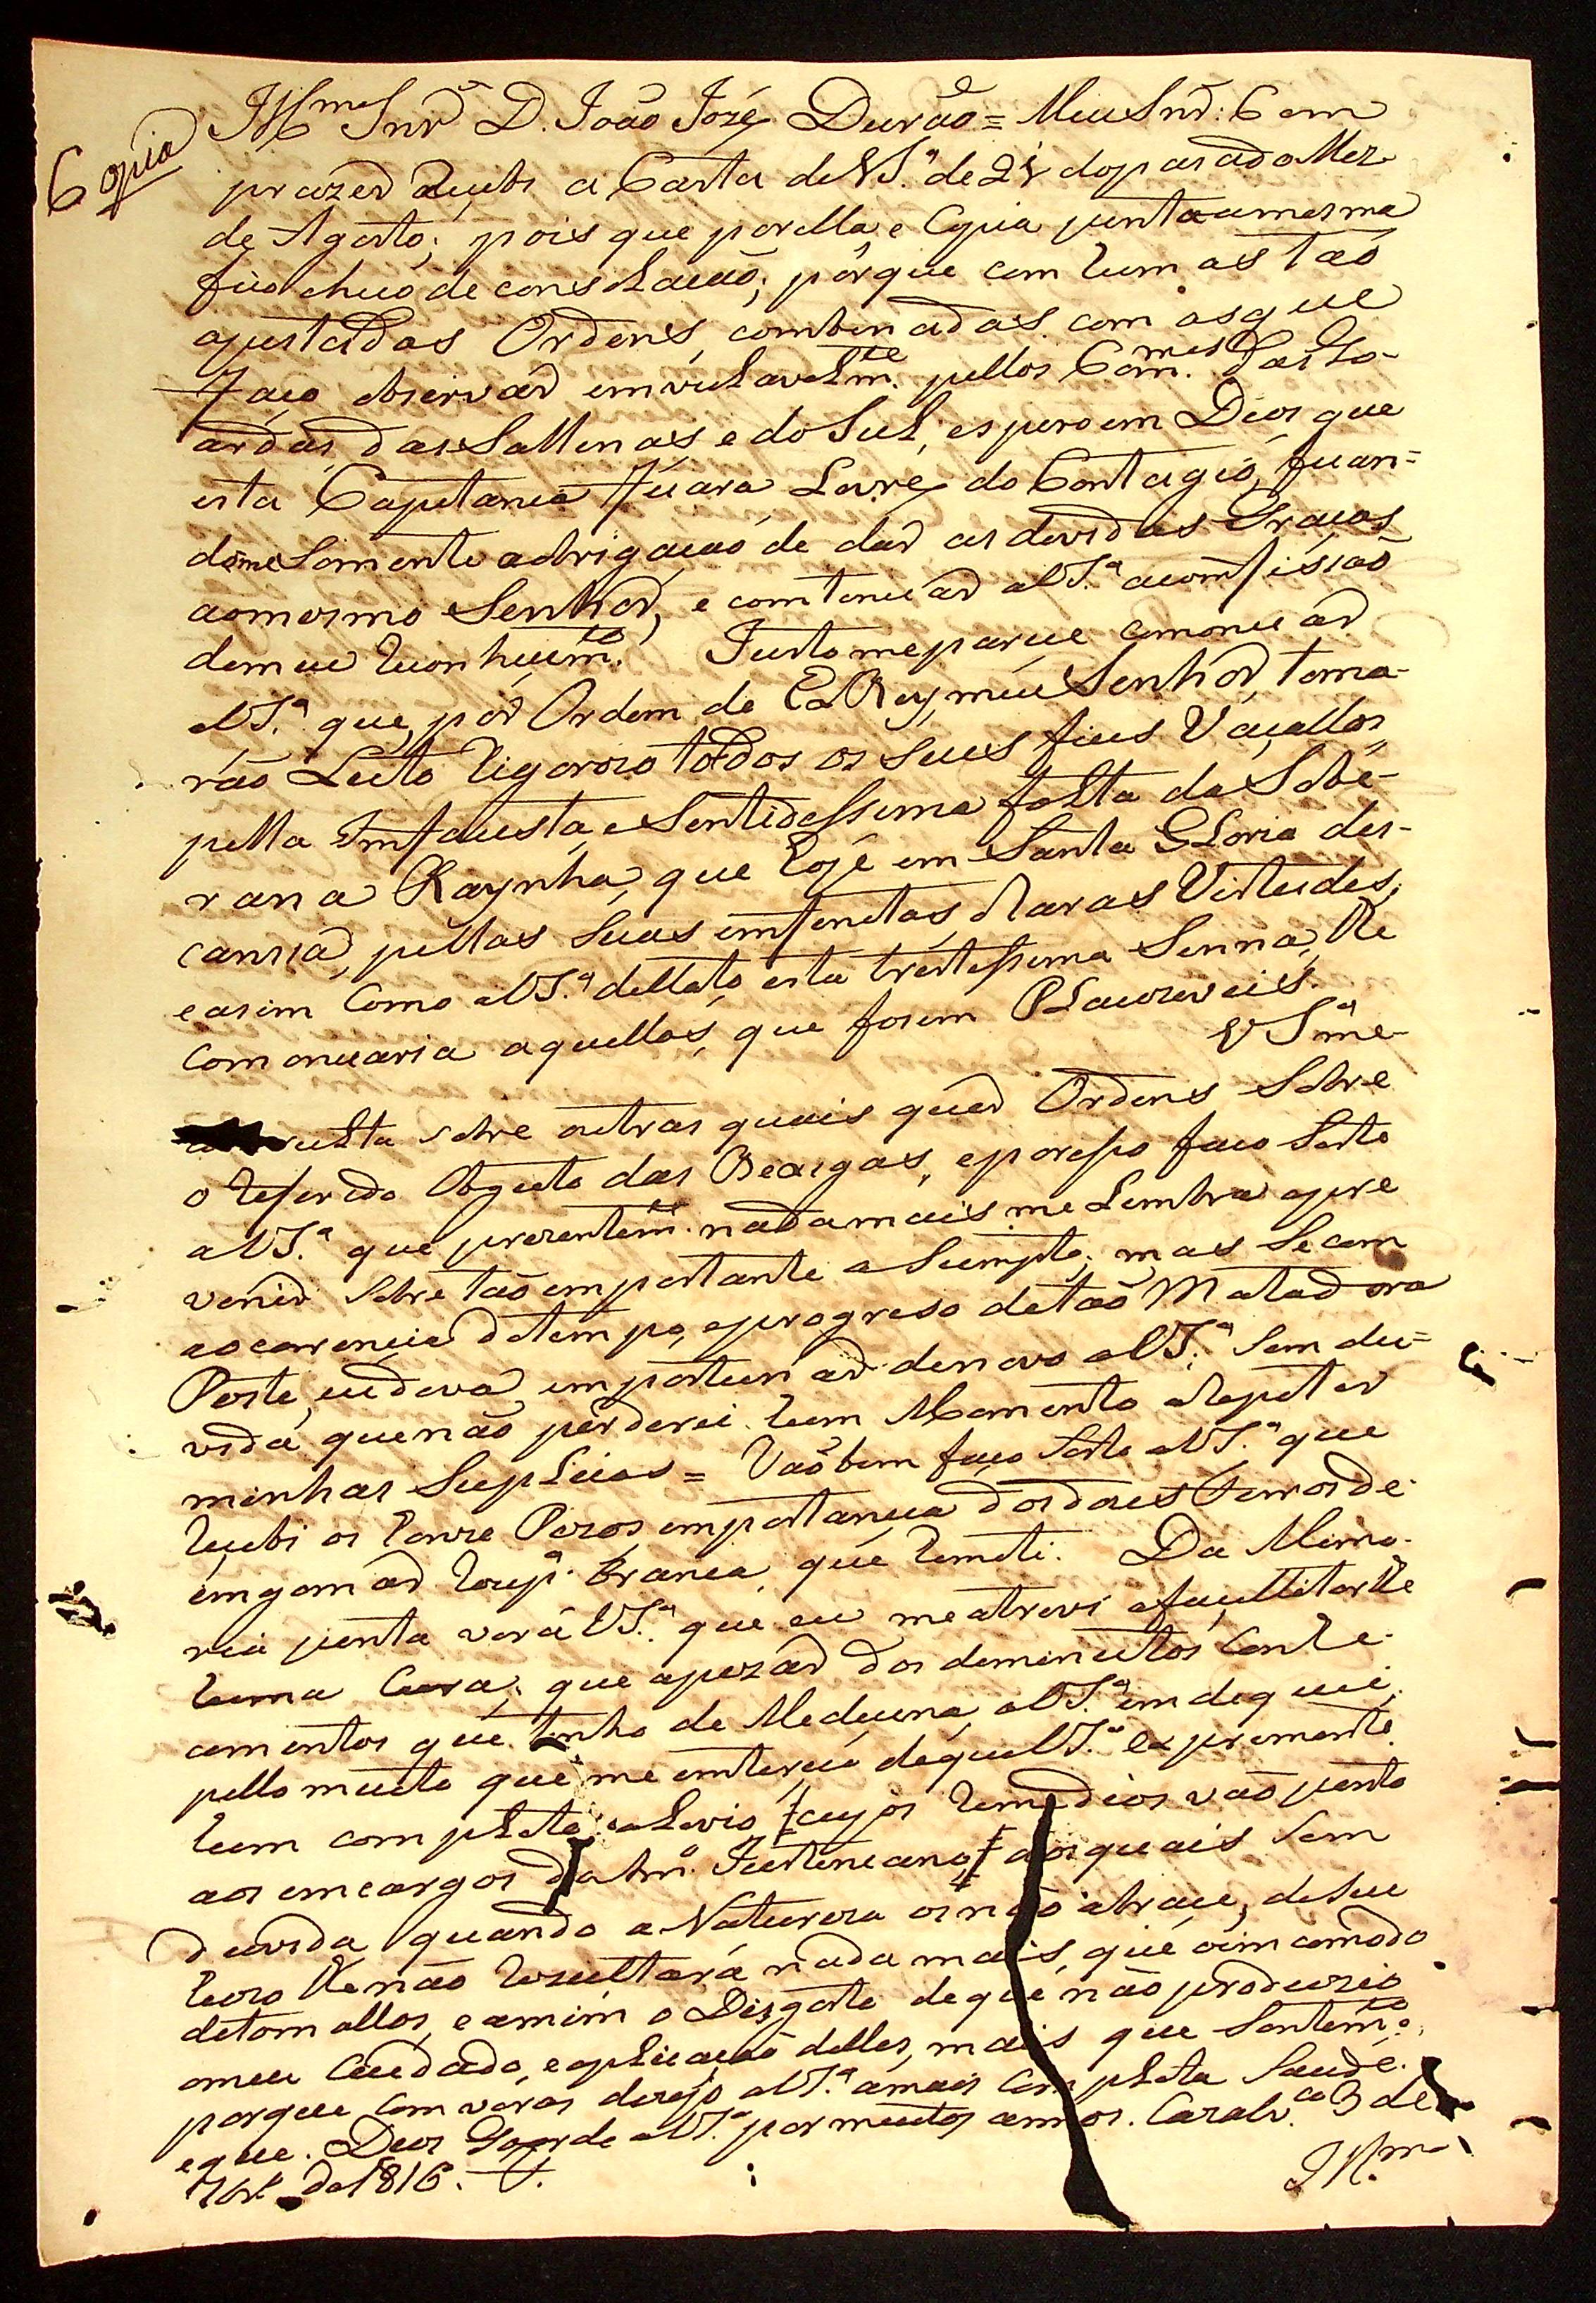 Copia
Illmo Snr D. João José Durão = Meu Snr: Com
prazer recibi a Carta de VS.ª de 28 do pasado Mez
de Agosto; pois que por ella, e Copia junta a mesma
fico cheio de consolacaõ; pôrque com humas taõ
ajustadas Ordens, combinadas com as que
faço observar inviolavelm.te pellos Com.mes das Go-
ardas das Sallinas, e do Sul, espero em Deos que
esta Capitania ficara Livre do Contagio, fican=
dome Somente a obrigacaõ de dar as devidas Gracas
ao mesmo Senhor, e comtenuar a VS.ª a comfissaõ
de meu reconhecim.to. Justo me parece comonicar
a VS.ª que, por Ordem de El Rey, meu Senhor, toma-
rão Luto rigorozo todos os Seus fieis Vaçallos,
pella Imfausta, e Sentidessima falta da Sobe-
rana Raynha, que hoje em Santa Gloria des-
cansa, pellas Suas imfenitas, e raras Virtudes;
e asim Como a VS.ª dellato esta tristessima Senna, lhe
comonicaria aquellas, que forem Plauziveis.
VS.ª me-
consulta sobre outras quais quer Ordens Sobre
o referido Objecto das Bexigas, e por eso faco Serto
a VS.ª que prezentem.te nada mais me Lembra a pre
venir Sobre taõ importante a Sumpto; mas Se com
a ocorrencia do tempo, e progreso de taõ Matadora
Peste, eu dever importunar de novo a VS.ª Sem du=
vida que não perderei hum Momento a repetir
minhas Suplicas = Taõbem faço Serto a VS.ª que
recibi os honze Pezos, importancia dos dois ferros de
emgomar roup.ª Branca, que remeti. Da Memo-
ria junta verá VS.ª que eu me atrevi a facultitarlhe
huma Cura, que a pezar dos deminutos Conhe-
cimentos que tenho de Medecina, a VS.ª indequei,
pello muito que me enterecio de que VS.ª experemente
hum completo alivio / cujos remedios vaõ junto
aos emcargos da Irm.ª Justineana / dos quais Sem
duvida, quando a Natureza os não abrace, de Seu
huzo lhe não rezultará nada mais, que o imcomodo
de tomallos, e a mim o Disgosto de que não produzio
o meu Cuidado, e aplicacaõ delles, mais que Sentim.to,
porque com veras dezejo a VS.ª a mais Completa Saude.
e que. Deos Goarde a VS.ª por muitos annos. Caralv.ca 3 de
7br.º de 1816. =
Illm.º